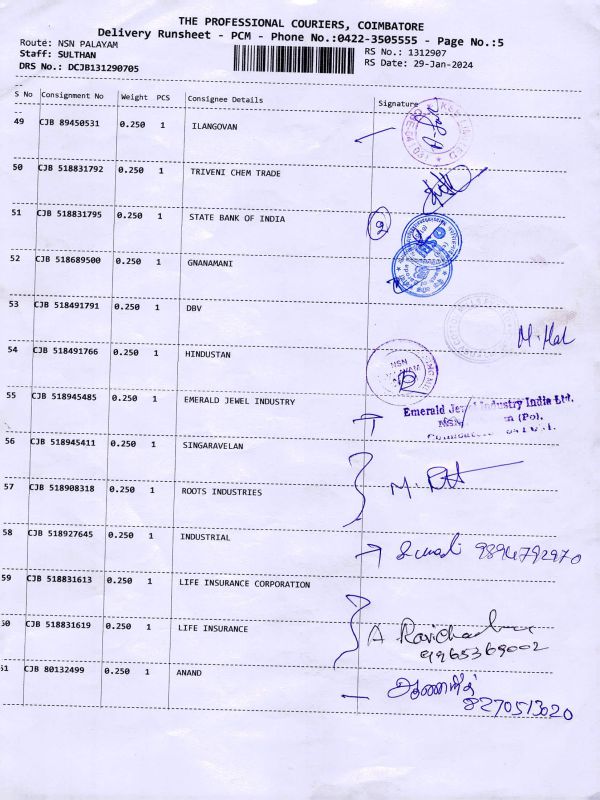 THE PROFESSIONAL COURIERS, COIMBATORE
Delivery Runsheet - PCM - Phone No.:0422-3505555 - Page No.:5
Route: NSN PALAYAM RS No.: 1312907
Staff: SULTHAN RS Date: 29-Jan-2024
DRS No.: DCJB131290705
S No Consignment No Weight PCS Consignee Details Signature
49 CJB 89450531 0.250 1 ILANGOVAN
50 CJB 518831792 0.250 1 TRIVENI CHEM TRADE
51 CJB 518831795 0.250 1 STATE BANK OF INDIA
52 CJB 518689500 0.250 1 GNANAMANI
53 CJB 518491791 0.250 1 DBV
54 CJB 518491766 0.250 1 HINDUSTAN
NSN
55 CJB 518945485 0.250 1 EMERALD JEWEL INDUSTRY
Emerald Industry India Ltd.
56 CJB 518945411 0.250 1 SINGARAVELAN
57 CJB 518908318 0.250 1 ROOTS INDUSTRIES
58 CJB 518927645 0.250 1 INDUSTRIAL
9894792970
59 CJB 518831613 0.250 1 LIFE INSURANCE CORPORATION
60 CJB 518831619 0.250 1 LIFE INSURANCE
9965369002
61 CJB 80132499 0.250 1 ANAND
8270513020